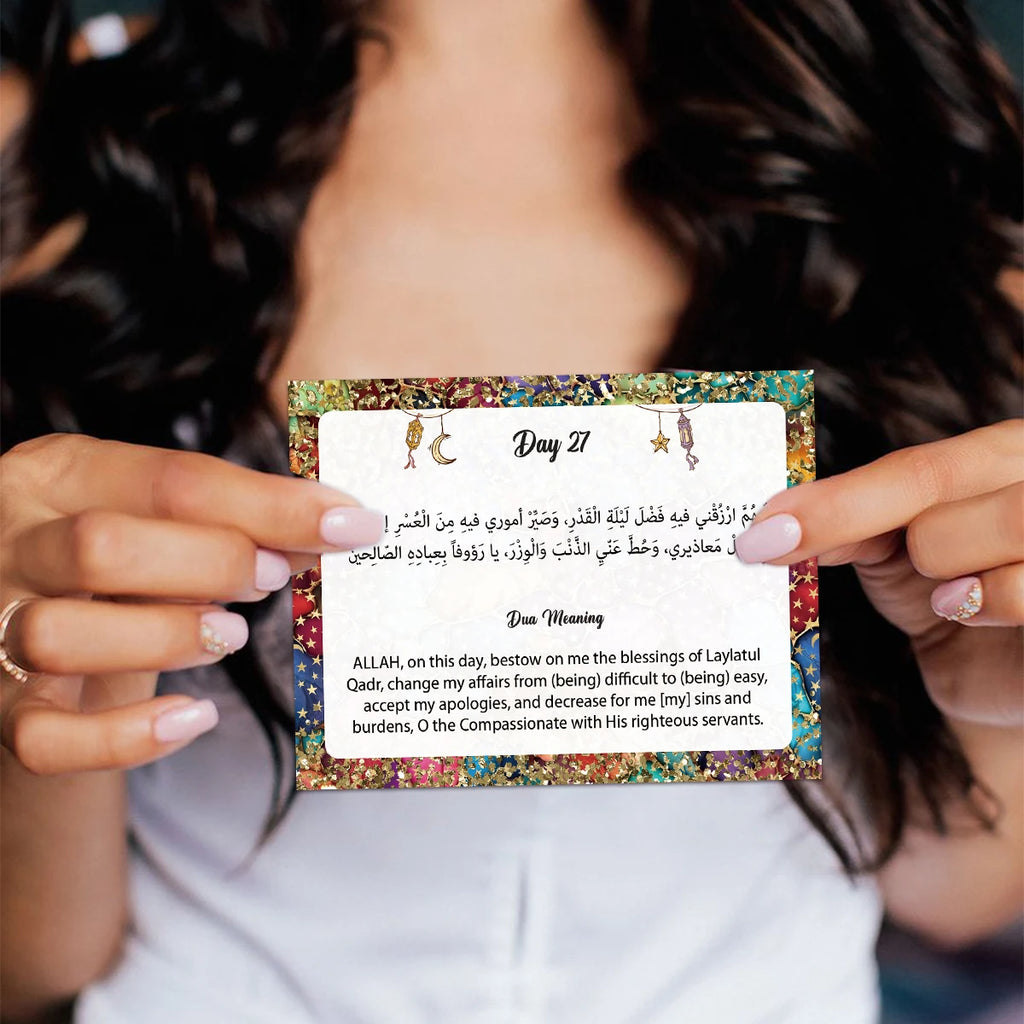 Day 27
ارْزُقْني فيهِ فَضْلَ لَيْلَةِ الْقَدْرِ، وَصَيِّرْ أموري فيهِ مِنَ الْعُسْرِ
مَعاذيري، وَحُطَّ عَنّيِ الذَّنْبَ وَالْوِزْرَ، يا رَؤوفاً بِعِبادِهِ الصّالِحينَ
Dua Meaning
ALLAH, on this day, bestow on me the blessings of Laylatul
Qadr, change my affairs from (being) difficult to (being) easy,
accept my apologies, and decrease for me [my] sins and
burdens, O the Compassionate with His righteous servants.